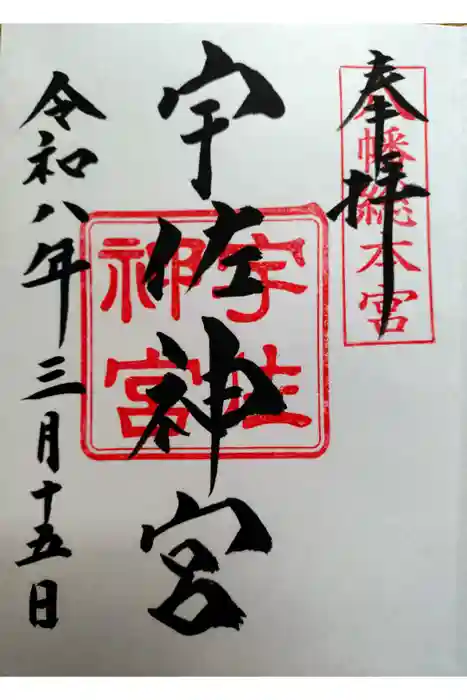 奉拝
八幡総本宮
宇佐神宮
宇佐
神宮
令和八年三月十五日